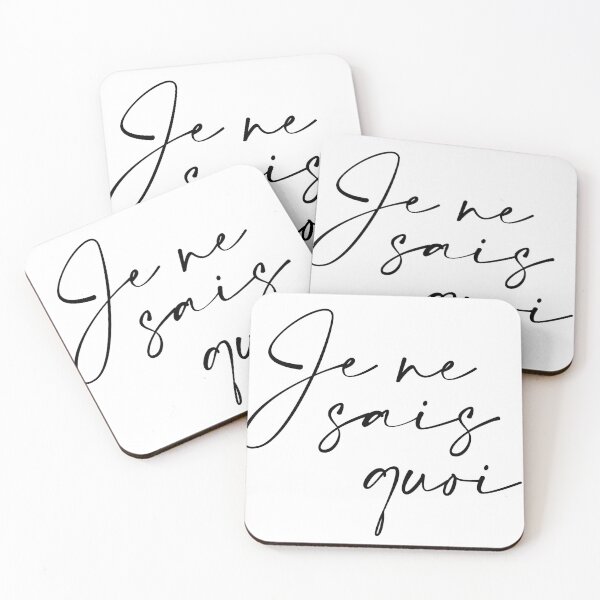 Je ne
sais
Je ne
sais
quoi
Je ne
sais
qu
Je ne
sais
quoi